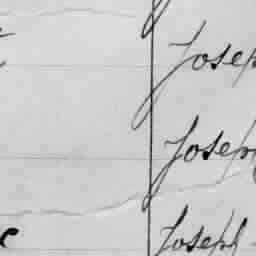 Josep
Joseph
Joseph